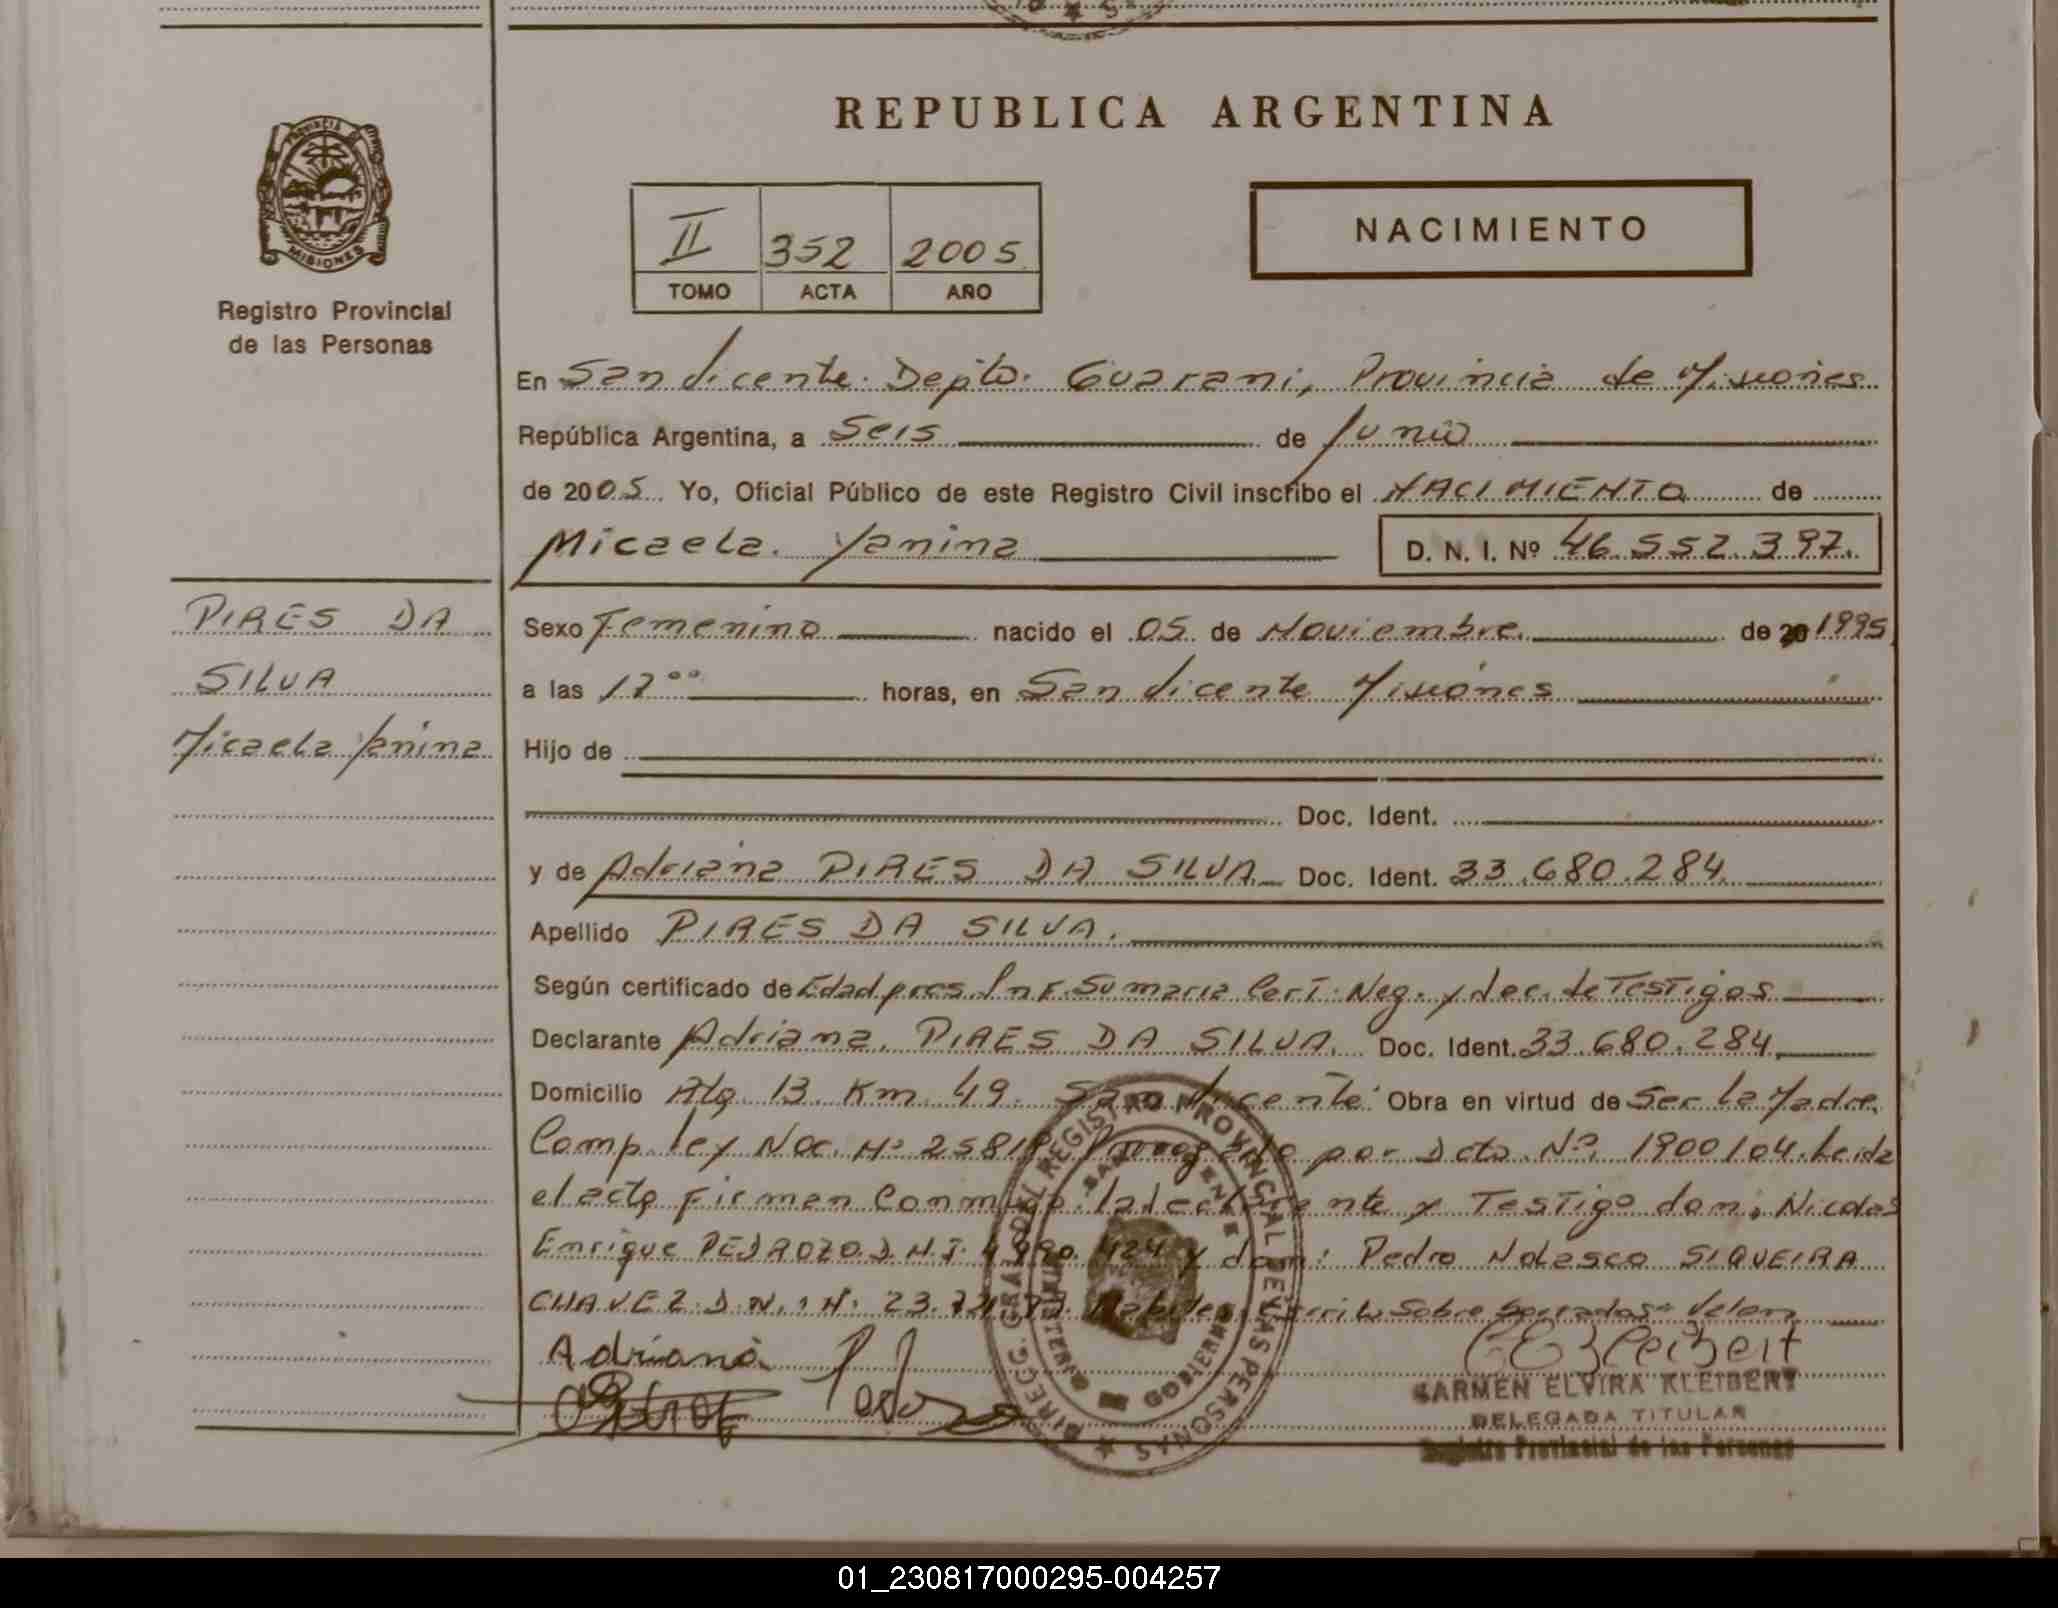 REPUBLICA ARGENTINA
PROVINCIA DE
MISIONES
Registro Provincial
de las Personas
II 352 2005
TOMO ACTA AÑO
NACIMIENTO
En San Vicente. Depto. Guarani, Provincia de Misiones
República Argentina, a Seis de Junio
de 2005 Yo, Oficial Público de este Registro Civil inscribo el NACIMIENTO de
Micaela Yanina D. N. I. Nº 46.552.397.
PIRES DA
SILVA
Micaela Yanina
Sexo Femenino nacido el 05 de Noviembre de 20 1995
a las 17 ºº horas, en San Vicente Misiones
Hijo de
Doc. Ident.
y de Adriana PIRES DA SILVA Doc. Ident. 33.680.284.
Apellido PIRES DA SILVA.
Según certificado de Edad pres. Inf. Sumaria Cert. Neg. y dec. de Testigos
Declarante Adriana PIRES DA SILVA. Doc. Ident. 33.680.284.
Domicilio Alq. 13 Km 49. San Vicente Obra en virtud de Ser la Madre.
Comp. ley Nac. Nº 25819 por Dcto. Nº 1900/04. Leida
el acta firman Conmigo la declarante y Testigo don: Nicolas
Enrique PEDROZO D.N.I. y don: Pedro Nolasco SIQUEIRA
CHAVEZ D.N.I. Nº 23. Escrito Sobre borrados: Valen
Adriana
DIRECC. GRAL. DEL REGISTRO PROVINCIAL DE LAS PERSONAS
MINISTERIO DE GOBIERNO
SAN VICENTE
CARMEN ELVIRA KLEIBERT
DELEGADA TITULAR
Registro Provincial de las Personas
01_230817000295-004257